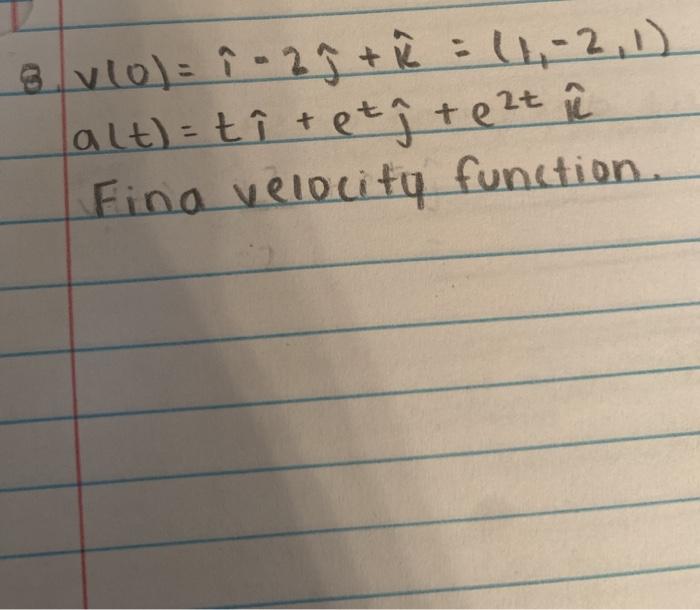 8. v(0) = î - 2ĵ + k̂ = (1,-2,1)
a(t) = t î + e^t ĵ + e^2t k̂
Find velocity function.